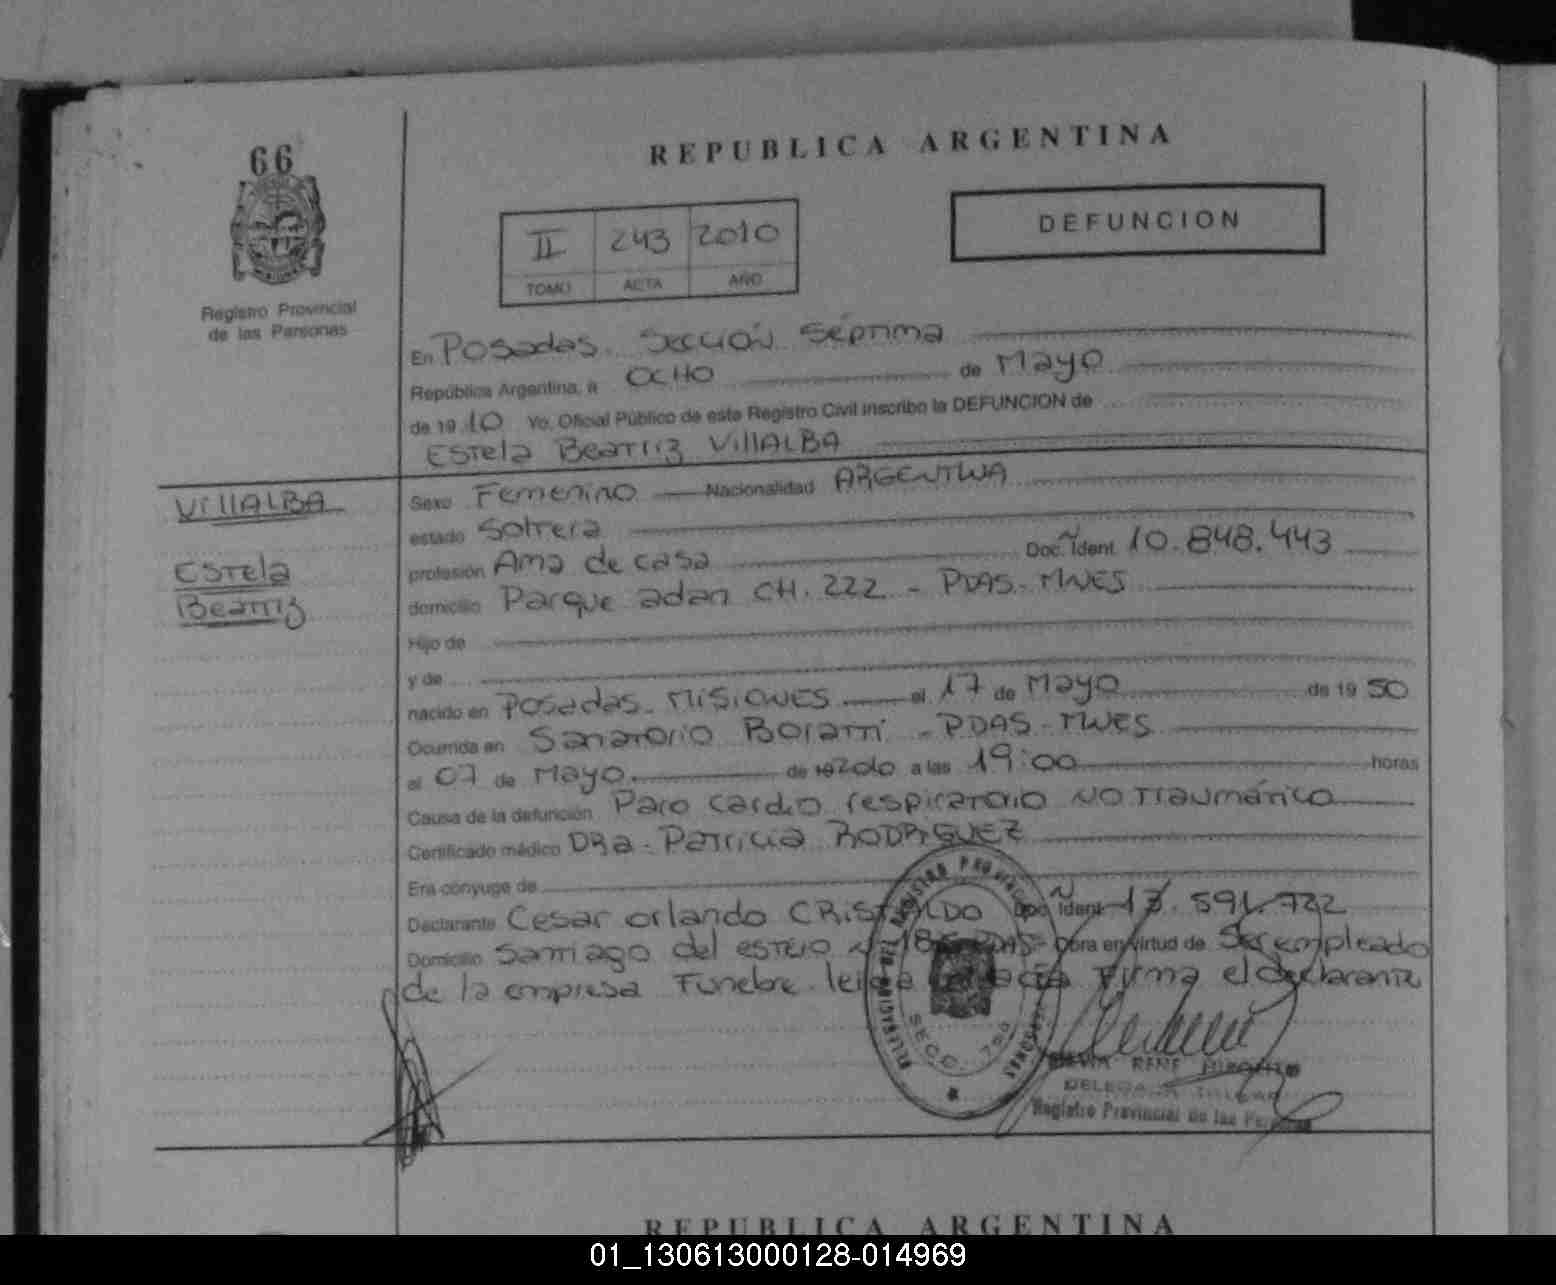 66
REPUBLICA ARGENTINA
DEFUNCION
II 243 2010
TOMO ACTA AÑO
Registro Provincial
de las Personas
En Posadas. Sección Séptima
República Argentina, a OCHO de Mayo
de 19 10 Yo, Oficial Público de este Registro Civil inscribo la DEFUNCION de
Estela Beatriz VillALBA
VillALBA
Estela
Beatriz
Sexo Femenino Nacionalidad ARGENTINA
estado Soltera
profesión Ama de casa Doc. Ident. 10.848.443
domicilio Parque adan CH. 222 - PDAS - MNES
Hijo de
y de
nacido en Posadas. MISIONES el 17 de Mayo de 19 50
Ocurrida en Sanatorio Boratti - PDAS - MNES
el 07 de Mayo de 19 2010 a las 19:00 horas
Causa de la defunción Paro cardio respiratorio NO Traumático
Certificado médico DRa. Patricia RODRIGUEZ
Era cónyuge de
Declarante Cesar orlando CRISTALDO Doc. Ident. 13.591.722
Domicilio Santiago del estero PDAS - Obra en virtud de Ser empleado
de la empresa Funebre. leida acta Firma el declarante
DELEGACION DEL REGISTRO PROVINCIAL PERSONAS
SECC. 7ma
RENE
DELEGADA TITULAR
Registro Provincial de las Personas
REPUBLICA ARGENTINA
01_130613000128-014969